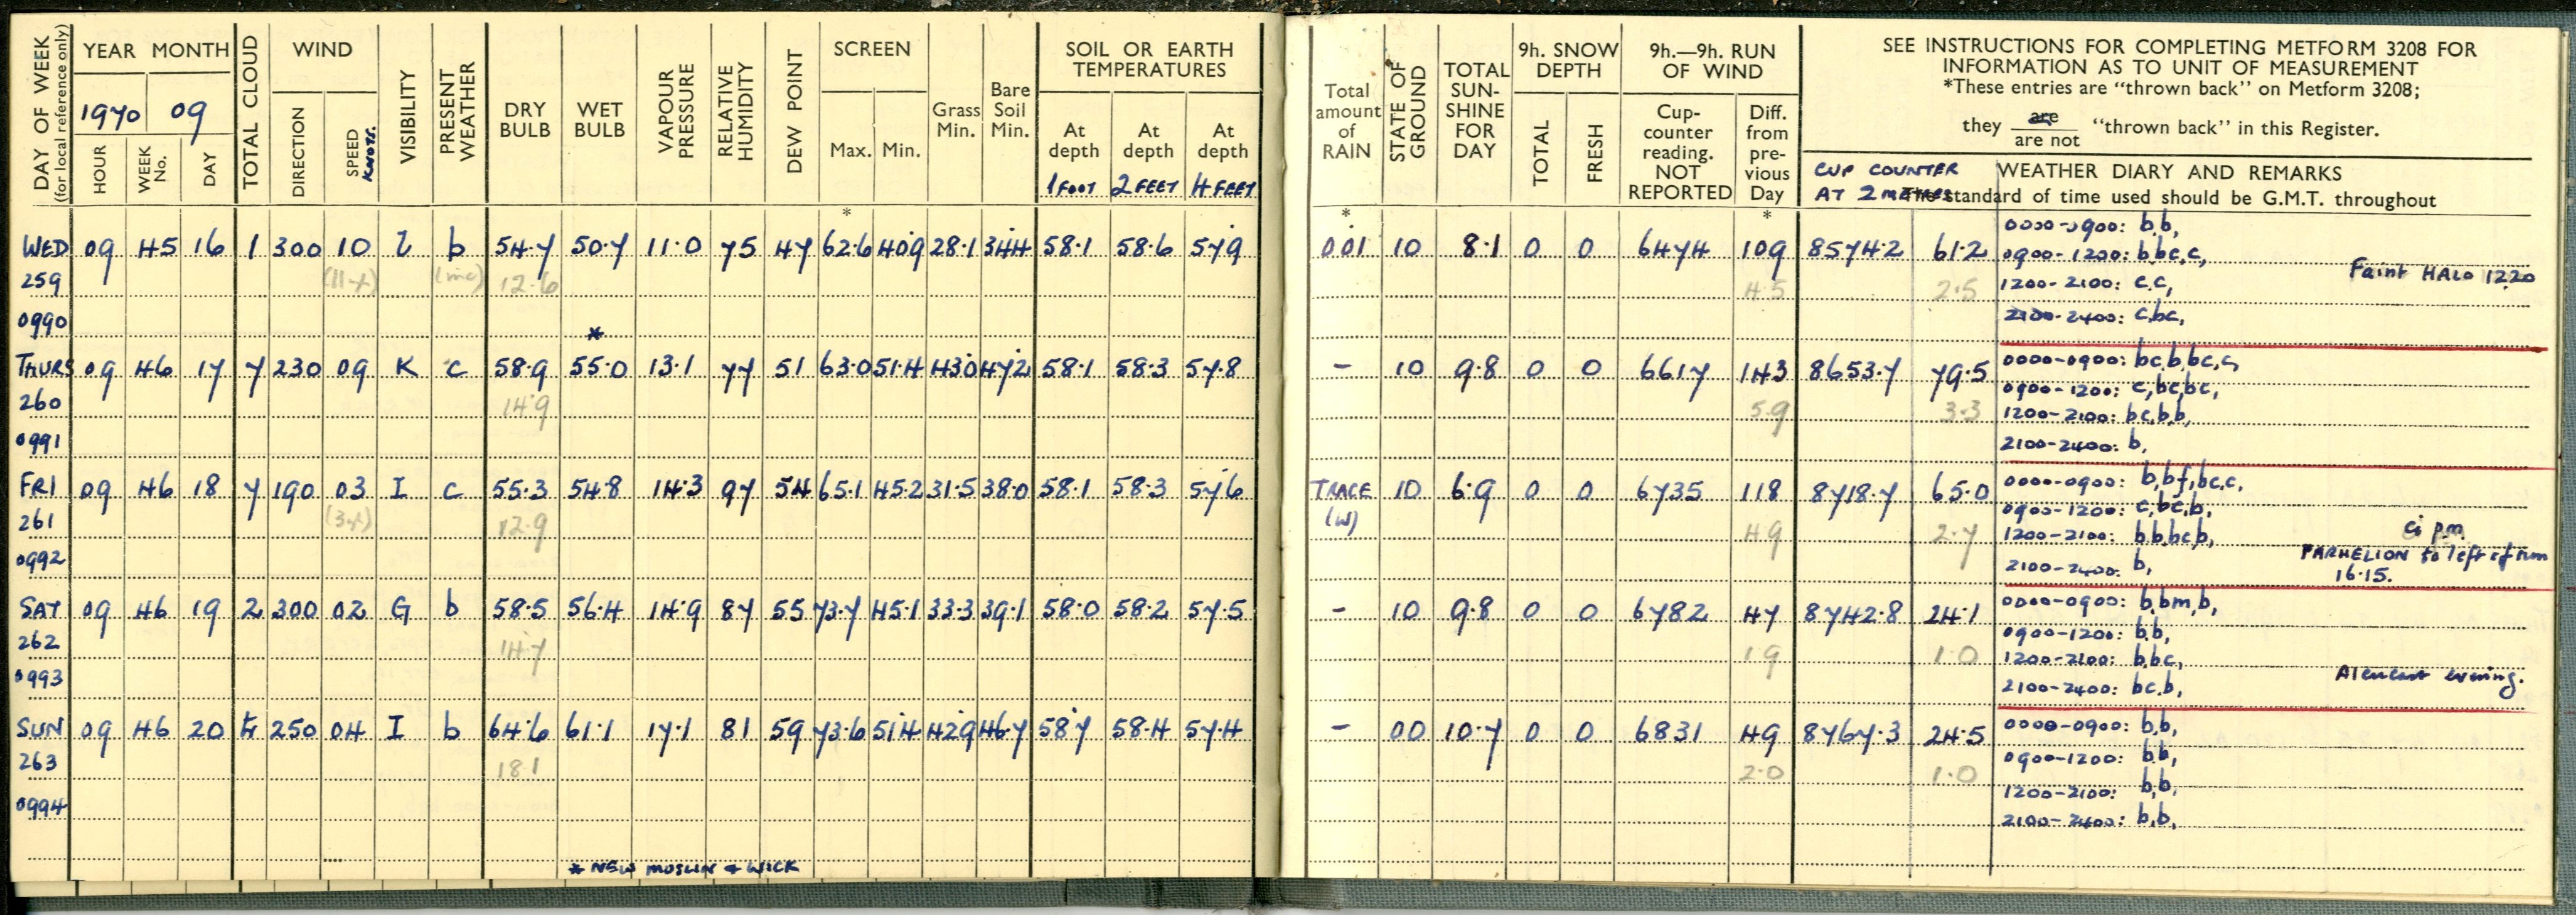 DAY OF WEEK
(for local reference only)
YEAR MONTH
1970 09
HOUR
WEEK No.
DAY
TOTAL CLOUD
WIND
DIRECTION
SPEED KNOTS.
VISIBILITY
PRESENT WEATHER
DRY BULB
WET BULB
VAPOUR PRESSURE
RELATIVE HUMIDITY
DEW POINT
SCREEN
Max. Min.
Grass Min.
Bare Soil Min.
SOIL OR EARTH TEMPERATURES
At depth 1 FOOT
At depth 2 FEET
At depth 4 FEET
WED 09 45 16 1 300 10 b 54.7 50.7 11.0 75 47 62.6 40.9 28.1 34.4 58.1 58.6 57.9
259 12.6
0990
*
THURS 09 46 17 7 230 09 K c 58.9 55.0 13.1 77 51 63.0 51.4 43.0 47.2 58.1 58.3 57.8
260 14.9
0991
FRI 09 46 18 7 190 03 I c 55.3 54.8 14.3 97 54 65.1 45.2 31.5 38.0 58.1 58.3 57.6
261 12.9
0992
SAT 09 46 19 2 300 02 G b 58.5 56.4 14.9 87 55 73.7 45.1 33.3 39.1 58.0 58.2 57.5
262 14.7
0993
SUN 09 46 20 250 04 I b 64.6 61.1 17.1 81 59 73.6 51.4 42.9 46.7 58.7 58.4 57.4
263 18.1
0994
* NEW MUSLIN & WICK
Total amount of RAIN
STATE OF GROUND
TOTAL SUN-SHINE FOR DAY
9h. SNOW DEPTH
TOTAL
FRESH
9h.—9h. RUN OF WIND
Cup-counter reading. NOT REPORTED
Diff. from pre-vious Day
SEE INSTRUCTIONS FOR COMPLETING METFORM 3208 FOR
INFORMATION AS TO UNIT OF MEASUREMENT
*These entries are "thrown back" on Metform 3208;
they are / are not "thrown back" in this Register.
CUP COUNTER
AT 2 METRES
WEATHER DIARY AND REMARKS
The standard of time used should be G.M.T. throughout
0.01 10 8.1 0 0 6474 109 8574.2 61.2
4.5 2.5
0000-0900: b,b,
0900-1200: b,bc,c,
Faint HALO 1220
1200-2100: c,c,
2100-2400: c,bc,
- 10 9.8 0 0 6617 143 8653.7 79.5
5.9 3.3
0000-0900: bc,b,bc,c,
0900-1200: c,bc,bc,
1200-2100: bc,b,b,
2100-2400: b,
TRACE 10 6.9 0 0 6735 118 8718.7 65.0
(W) 4.9 2.7
0000-0900: b,bf,bc,c,
0900-1200: c,bc,b,
ci p.m.
1200-2100: b,b,bc,b,
PARHELION to left of sun
2100-2400: b,
16.15.
- 10 9.8 0 0 6782 47 8742.8 24.1
1.9 1.0
0000-0900: b,bm,b,
0900-1200: b,b,
1200-2100: b,bc,
2100-2400: bc,b,
evening.
- 00 10.7 0 0 6831 49 8767.3 24.5
2.0 1.0
0000-0900: b,b,
0900-1200: b,b,
1200-2100: b,b,
2100-2400: b,b,